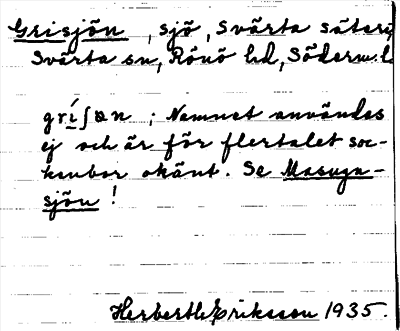 Grisjön, sjö, Svärta säteri
Svärta sn, Rönö hd, Söderm. l
gríʃɷn ; Namnet användes
ej och är för flertalet soc-
kenbor okänt. Se Masugn-
sjön !
Herbert Eriksson 1935.